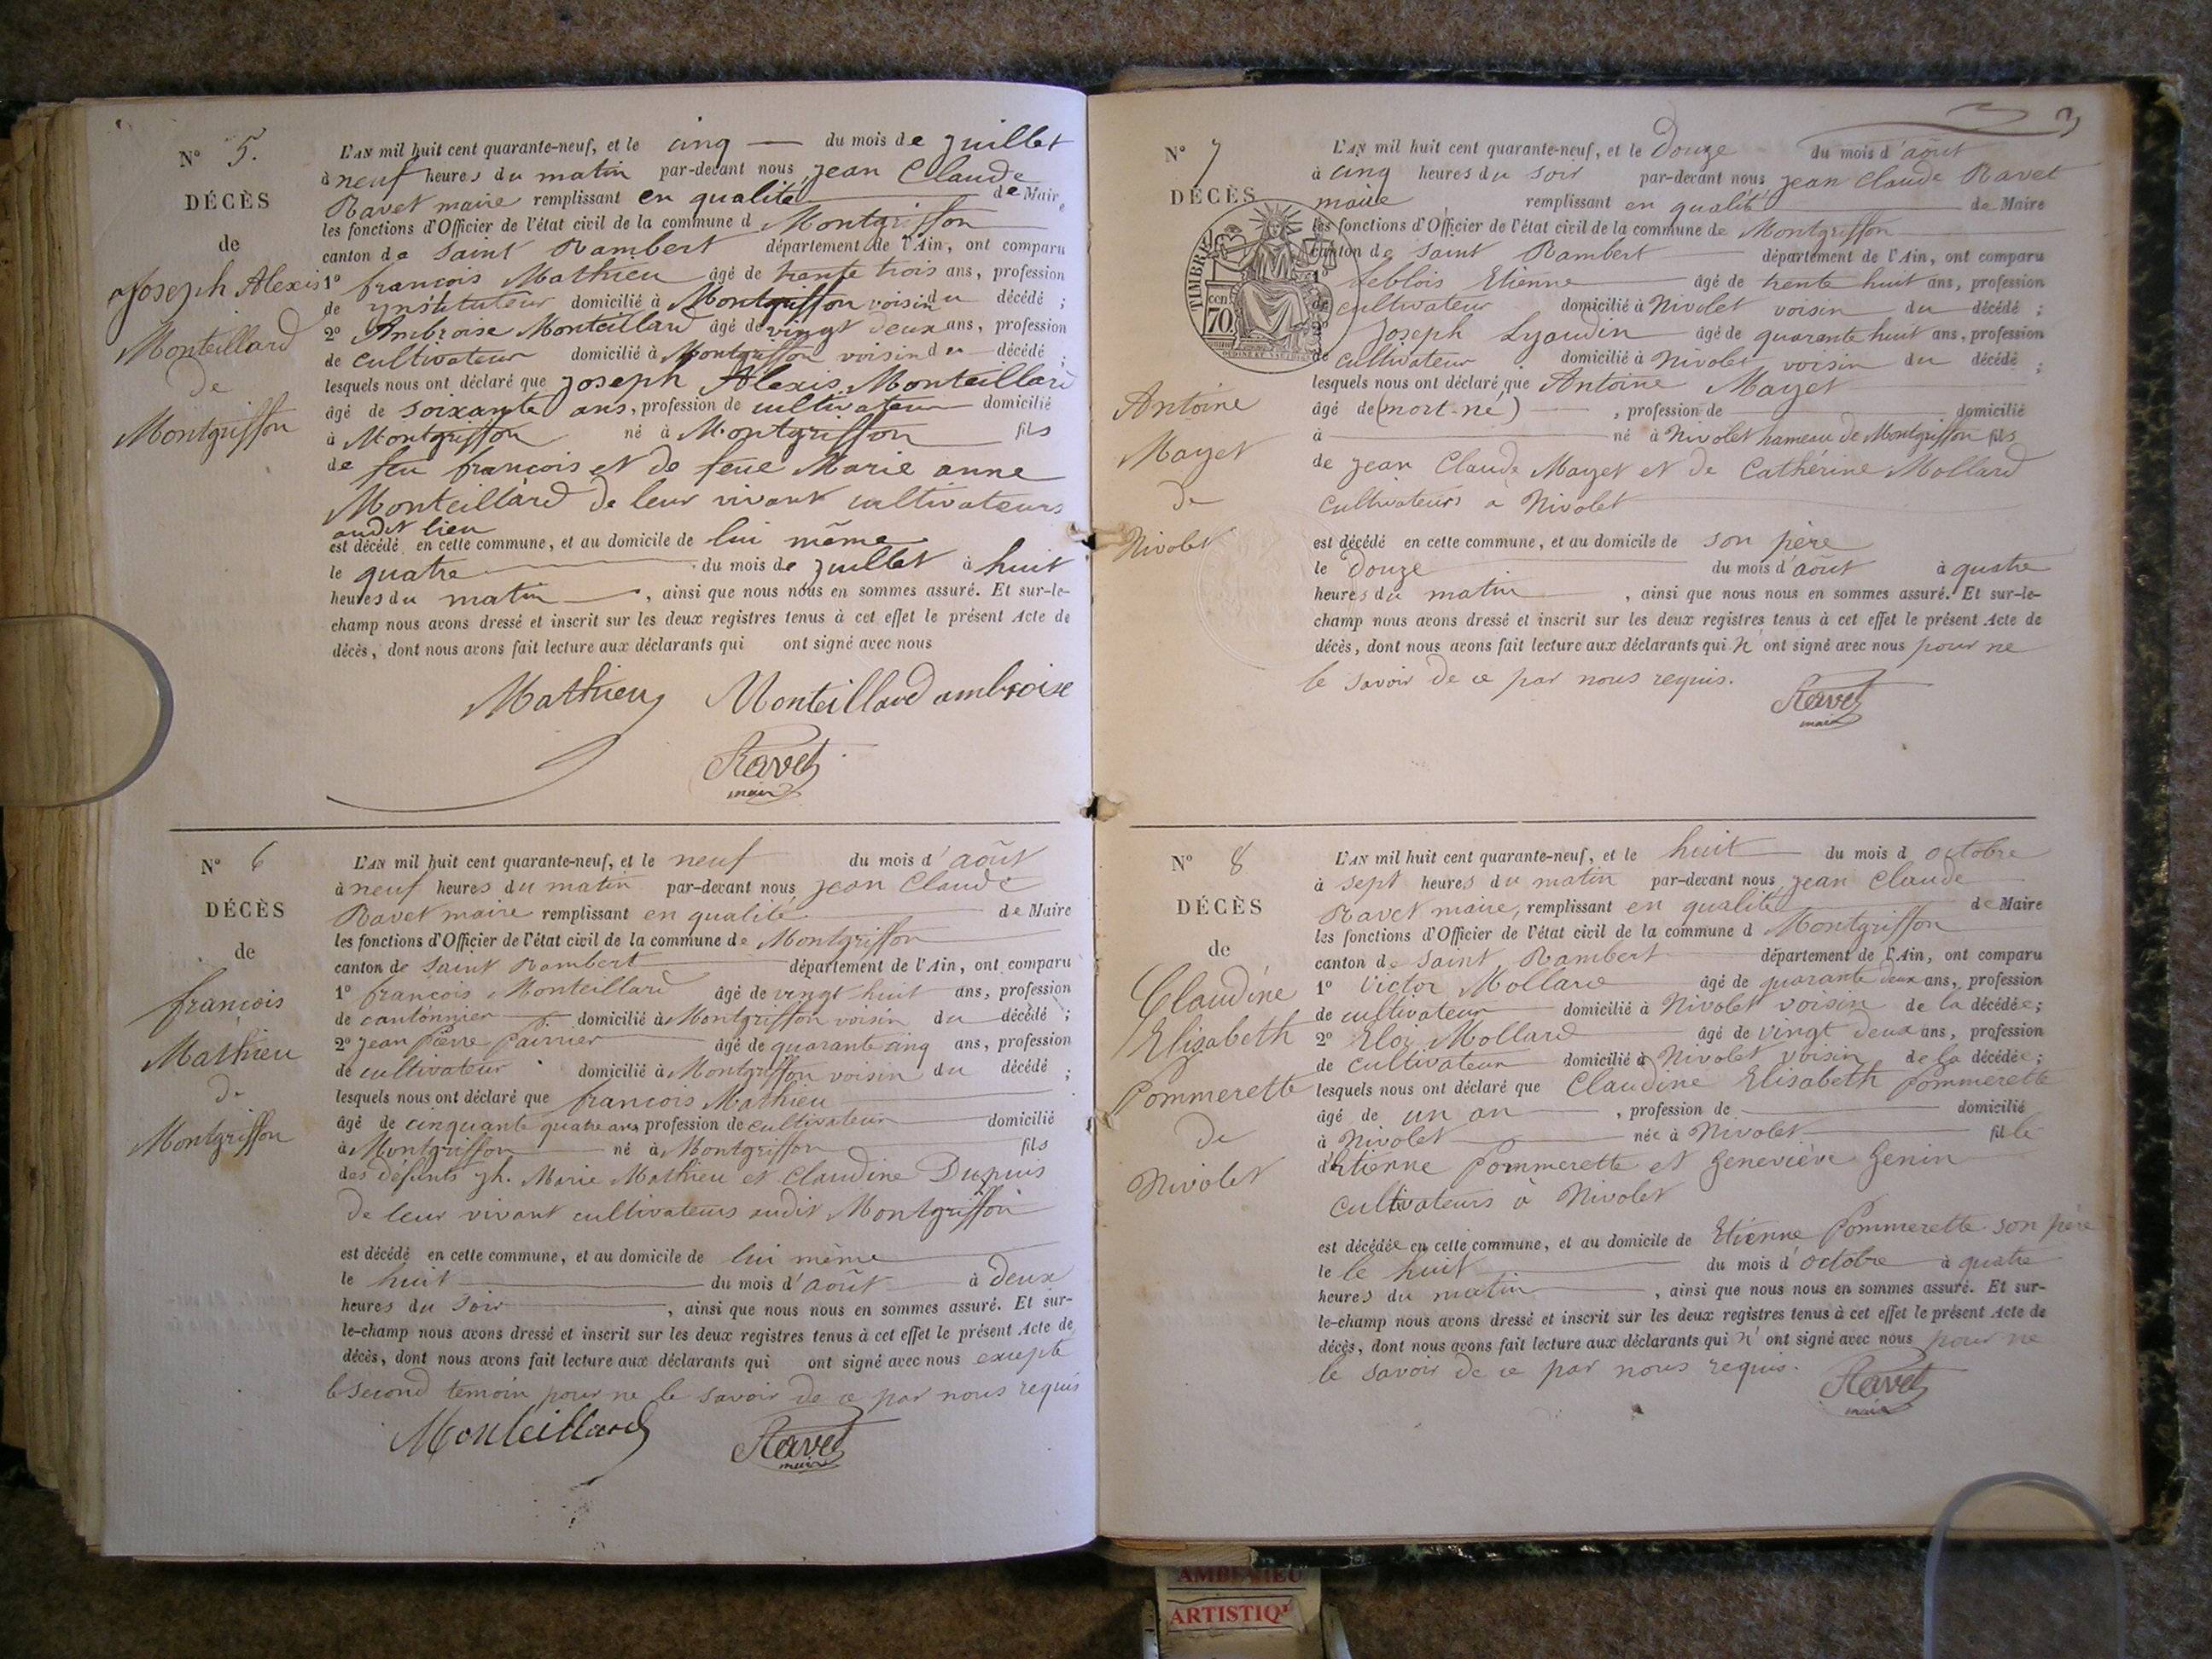 N° 5.
DÉCÈS
de
Joseph Alexis
Monteillard
de
Montgriffon
L'AN mil huit cent quarante-neuf, et le cinq du mois de juillet
à neuf heures du matin par-devant nous, jean Claude
Ravet maire remplissant en qualité de Maire
les fonctions d'Officier de l'état civil de la commune d Montgriffon
canton de saint Rambert département de l'Ain, ont comparu
1° françois Mathieu âgé de trente trois ans, profession
de ynstituteur domicilié à Montgriffon voisin du décédé ;
2° Ambroise Monteillard âgé de vingt deux ans, profession
de cultivateur domicilié à Montgriffon voisin du décédé ;
lesquels nous ont déclaré que joseph Alexis Monteillard
âgé de soixante ans, profession de cultivateur domicilié
à Montgriffon né à Montgriffon fils
de feu françois et de feue Marie anne
Monteillard de leur vivant cultivateurs
audit lieu
est décédé en cette commune, et au domicile de lui même
le quatre du mois de juillet à huit
heures du matin, ainsi que nous nous en sommes assuré. Et sur-le-
champ nous avons dressé et inscrit sur les deux registres tenus à cet effet le présent Acte de
décès, dont nous avons fait lecture aux déclarants qui ont signé avec nous
Mathieu Monteillard ambroise
Ravet
maire
N° 6
DÉCÈS
de
françois
Mathieu
de
Montgriffon
L'AN mil huit cent quarante-neuf, et le neuf du mois d'août
à neuf heures du matin par-devant nous, jean Claude
Ravet maire remplissant en qualité de Maire
les fonctions d'Officier de l'état civil de la commune de Montgriffon
canton de saint Rambert département de l'Ain, ont comparu
1° françois Monteillard âgé de vingt huit ans, profession
de cantonnier domicilié à Montgriffon voisin du décédé ;
2° jean pierre âgé de quarante cinq ans, profession
de cultivateur domicilié à Montgriffon voisin du décédé ;
lesquels nous ont déclaré que françois Mathieu
âgé de cinquante quatre ans profession de cultivateur domicilié
à Montgriffon né à Montgriffon fils
des défunts jh. Marie Mathieu et Claudine Dupuis
de leur vivant cultivateurs audit Montgriffon
est décédé en cette commune, et au domicile de lui même
le huit du mois d'août à deux
heures du soir, ainsi que nous nous en sommes assuré. Et sur-
le-champ nous avons dressé et inscrit sur les deux registres tenus à cet effet le présent Acte de
décès, dont nous avons fait lecture aux déclarants qui ont signé avec nous excepté
le second temoin pour ne le savoir de ce par nous requis
Monteillard Ravet
maire
3
N° 7
DÉCÈS
TIMBRE
cen
70
Antoine
Mayet
de
Nivolet
L'AN mil huit cent quarante-neuf, et le Douze du mois d'août
à cinq heures du soir par-devant nous jean Claude Ravet
maire remplissant en qualité de Maire
les fonctions d'Officier de l'état civil de la commune de Montgriffon
canton de saint Rambert département de l'Ain, ont comparu
Leblois Etienne âgé de trente huit ans, profession
de cultivateur domicilié à Nivolet voisin du décédé ;
2° Joseph Lyaudin âgé de quarante huit ans, profession
de cultivateur domicilié à Nivolet voisin du décédé ;
lesquels nous ont déclaré que Antoine Mayet
âgé de (mort-né), profession de domicilié
à né à Nivolet hameau de Montgriffon fils
de jean Claude Mayet et de Cathérine Mollard
cultivateurs à Nivolet
est décédé en cette commune, et au domicile de son père
le Douze du mois d'août à quatre
heures du matin, ainsi que nous nous en sommes assuré. Et sur-le-
champ nous avons dressé et inscrit sur les deux registres tenus à cet effet le présent Acte de
décès, dont nous avons fait lecture aux déclarants qui n'ont signé avec nous pour ne
le savoir de ce par nous requis.
Ravet
maire
N° 8
DÉCÈS
de
Claudine
Elisabeth
Pommerette
de
Nivolet
L'AN mil huit cent quarante-neuf, et le huit du mois d octobre
à sept heures du matin par-devant nous jean Claude
Ravet maire, remplissant en qualité de Maire
les fonctions d'Officier de l'état civil de la commune d Montgriffon
canton de saint Rambert département de l'Ain, ont comparu
1° Victor Mollard âgé de quarante deux ans, profession
de cultivateur domicilié à Nivolet voisin de la décédée ;
2° Eloi Mollard âgé de vingt deux ans, profession
de cultivateur domicilié à Nivolet voisin de la décédée ;
lesquels nous ont déclaré que Claudine Elisabeth Pommerette
âgé de un an, profession de domicilié
à Nivolet née à Nivolet fille
d'Etienne Pommerette et Geneviève Genin
cultivateurs à Nivolet
est décédée en cette commune, et au domicile de Etienne Pommerette son père
le le huit du mois d'octobre à quatre
heures du matin, ainsi que nous nous en sommes assuré. Et sur-
le-champ nous avons dressé et inscrit sur les deux registres tenus à cet effet le présent Acte de
décès, dont nous avons fait lecture aux déclarants qui n'ont signé avec nous pour ne
le savoir de ce par nous requis.
Ravet
maire
ARTISTIQ